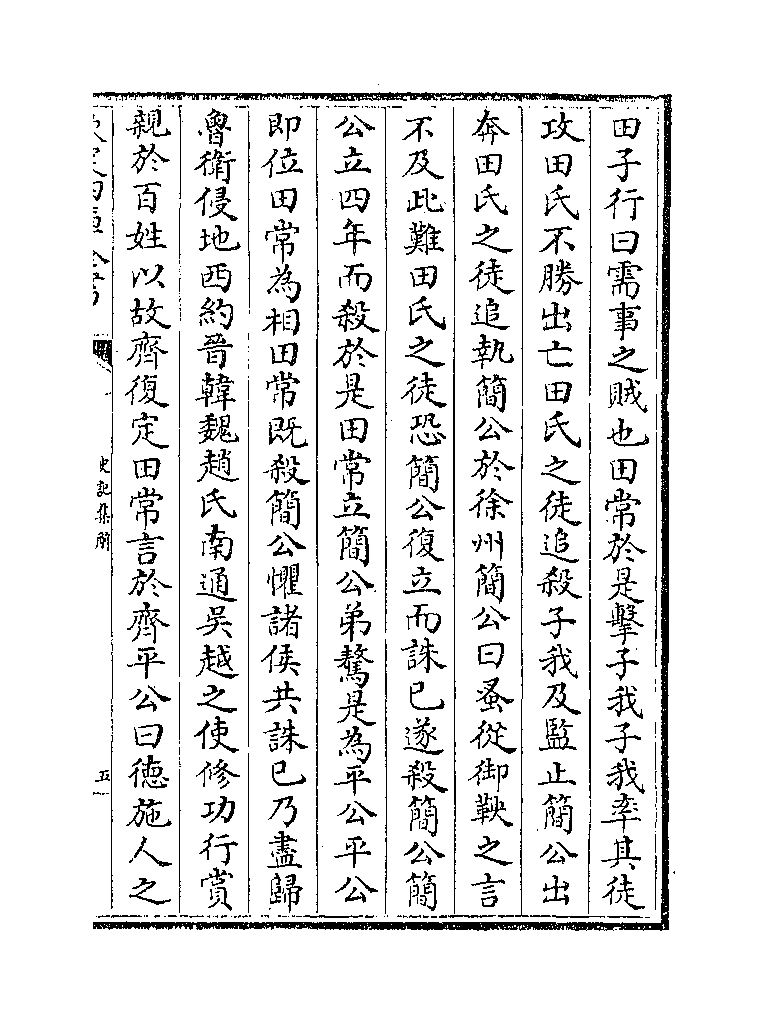 田子行曰需事之賊也田常於是擊子我子我率其徒
攻田氏不勝出亡田氏之徒追殺子我及監止簡公出
奔田氏之徒追執簡公於徐州簡公曰蚤從御鞅之言
不及此難田氏之徒恐簡公復立而誅已遂殺簡公簡
公立四年而殺於是田常立簡公弟驁是為平公平公
即位田常為相田常既殺簡公懼諸侯共誅已乃盡歸
魯衛侵地西約晉韓魏趙氏南通吳越之使修功行賞
親於百姓以故齊復定田常言於齊平公曰德施人之
史記集解
五